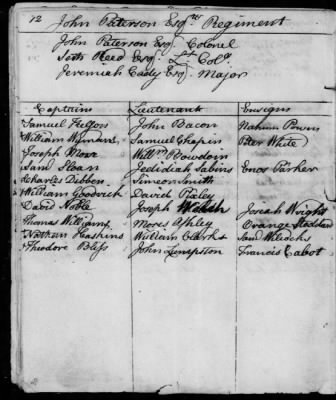 12 John Paterson Esqrs Regiment
John Paterson Esq. Colonel
Seth Reed Esq. Lt Colo.
Jeremiah Cady Esq. Major
Captains Lieutenants Ensigns
Samuel John Bacon Nahum Powers
William Wyman Samuel Chapin Peter White
Joseph Morse Willm Bowdoin
Saml Sloan Jedidiah Sabins Enos Parker
Charles Dibben Simeon Smith
William Goodrich David Pixley
David Noble Joseph Welch Josiah Wright
Thomas Williams Moses Ashley Orange Stoddard
Nathan Haskins William Clarks Saml Wilcocks
Theodore Bliss John Francis Cabot